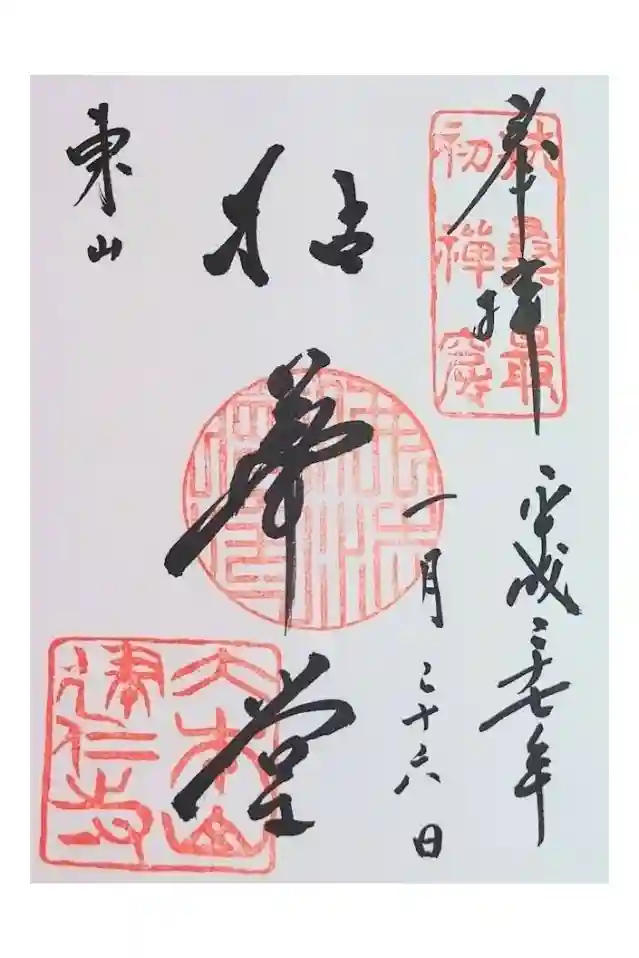 奉拝
扶桑最
初禪窟
平成二十七年
一月二十六日
拈華堂
東山
大本山
建仁寺